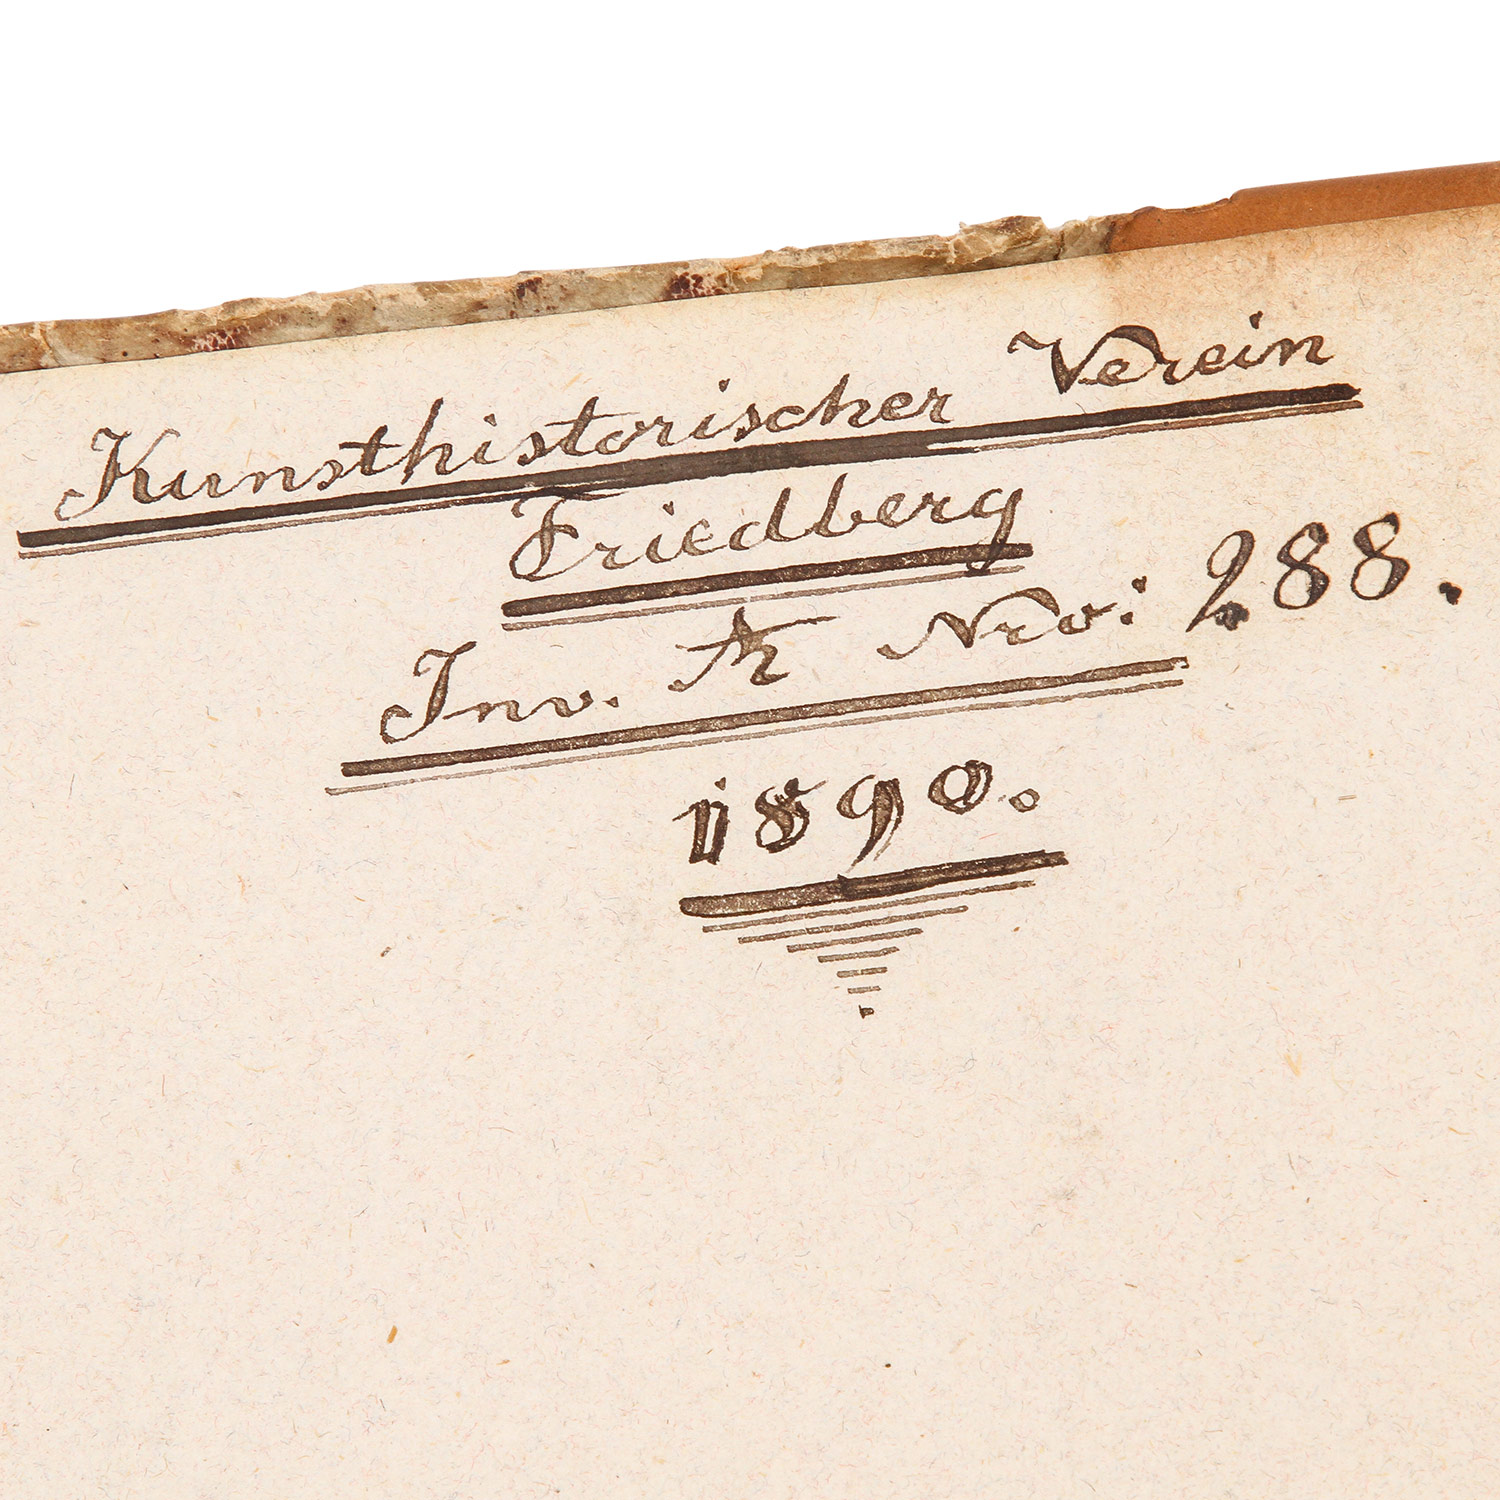 Kunsthistorischer Verein
Friedberg
Inv. Nro: 288.
1890.